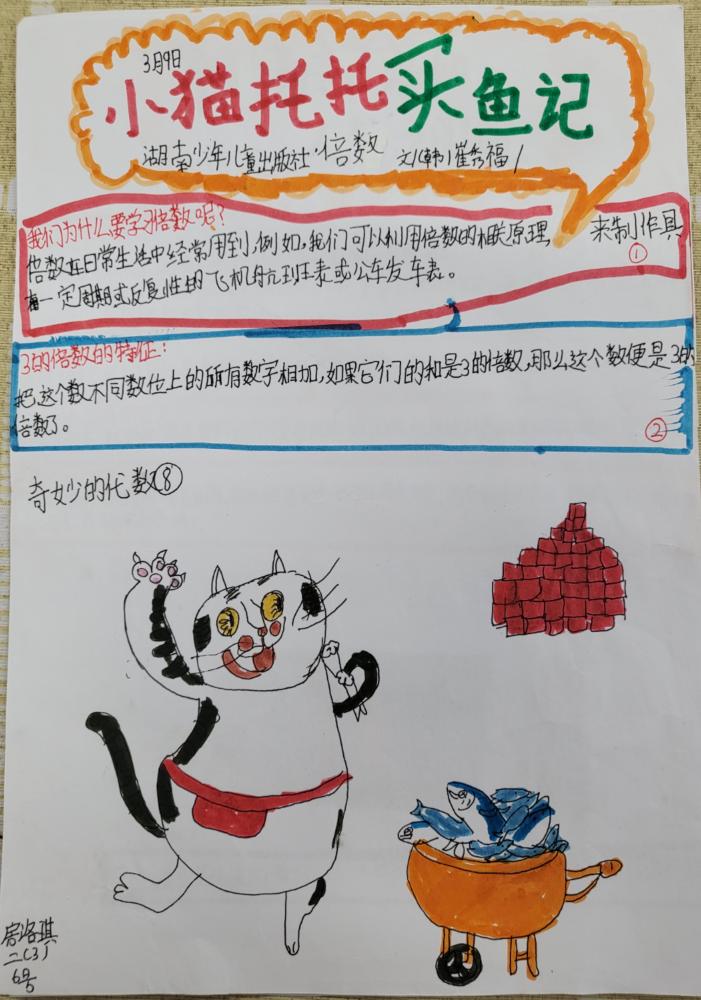 3月9日
小猫托托买鱼记
湖南少年儿童出版社·倍数 文/(韩)崔秀福/
我们为什么要学习倍数呢?
倍数在日常生活中经常用到,例如,我们可以利用倍数的相关原理,来制作具
有一定周期或反复性的飞机航班表或公车发车表。
①
3的倍数的特征:
把这个数不同数位上的所有数字相加,如果它们的和是3的倍数,那么这个数便是3的
倍数了。
②
奇妙的代数⑧
房洛琪
二(3)
6号